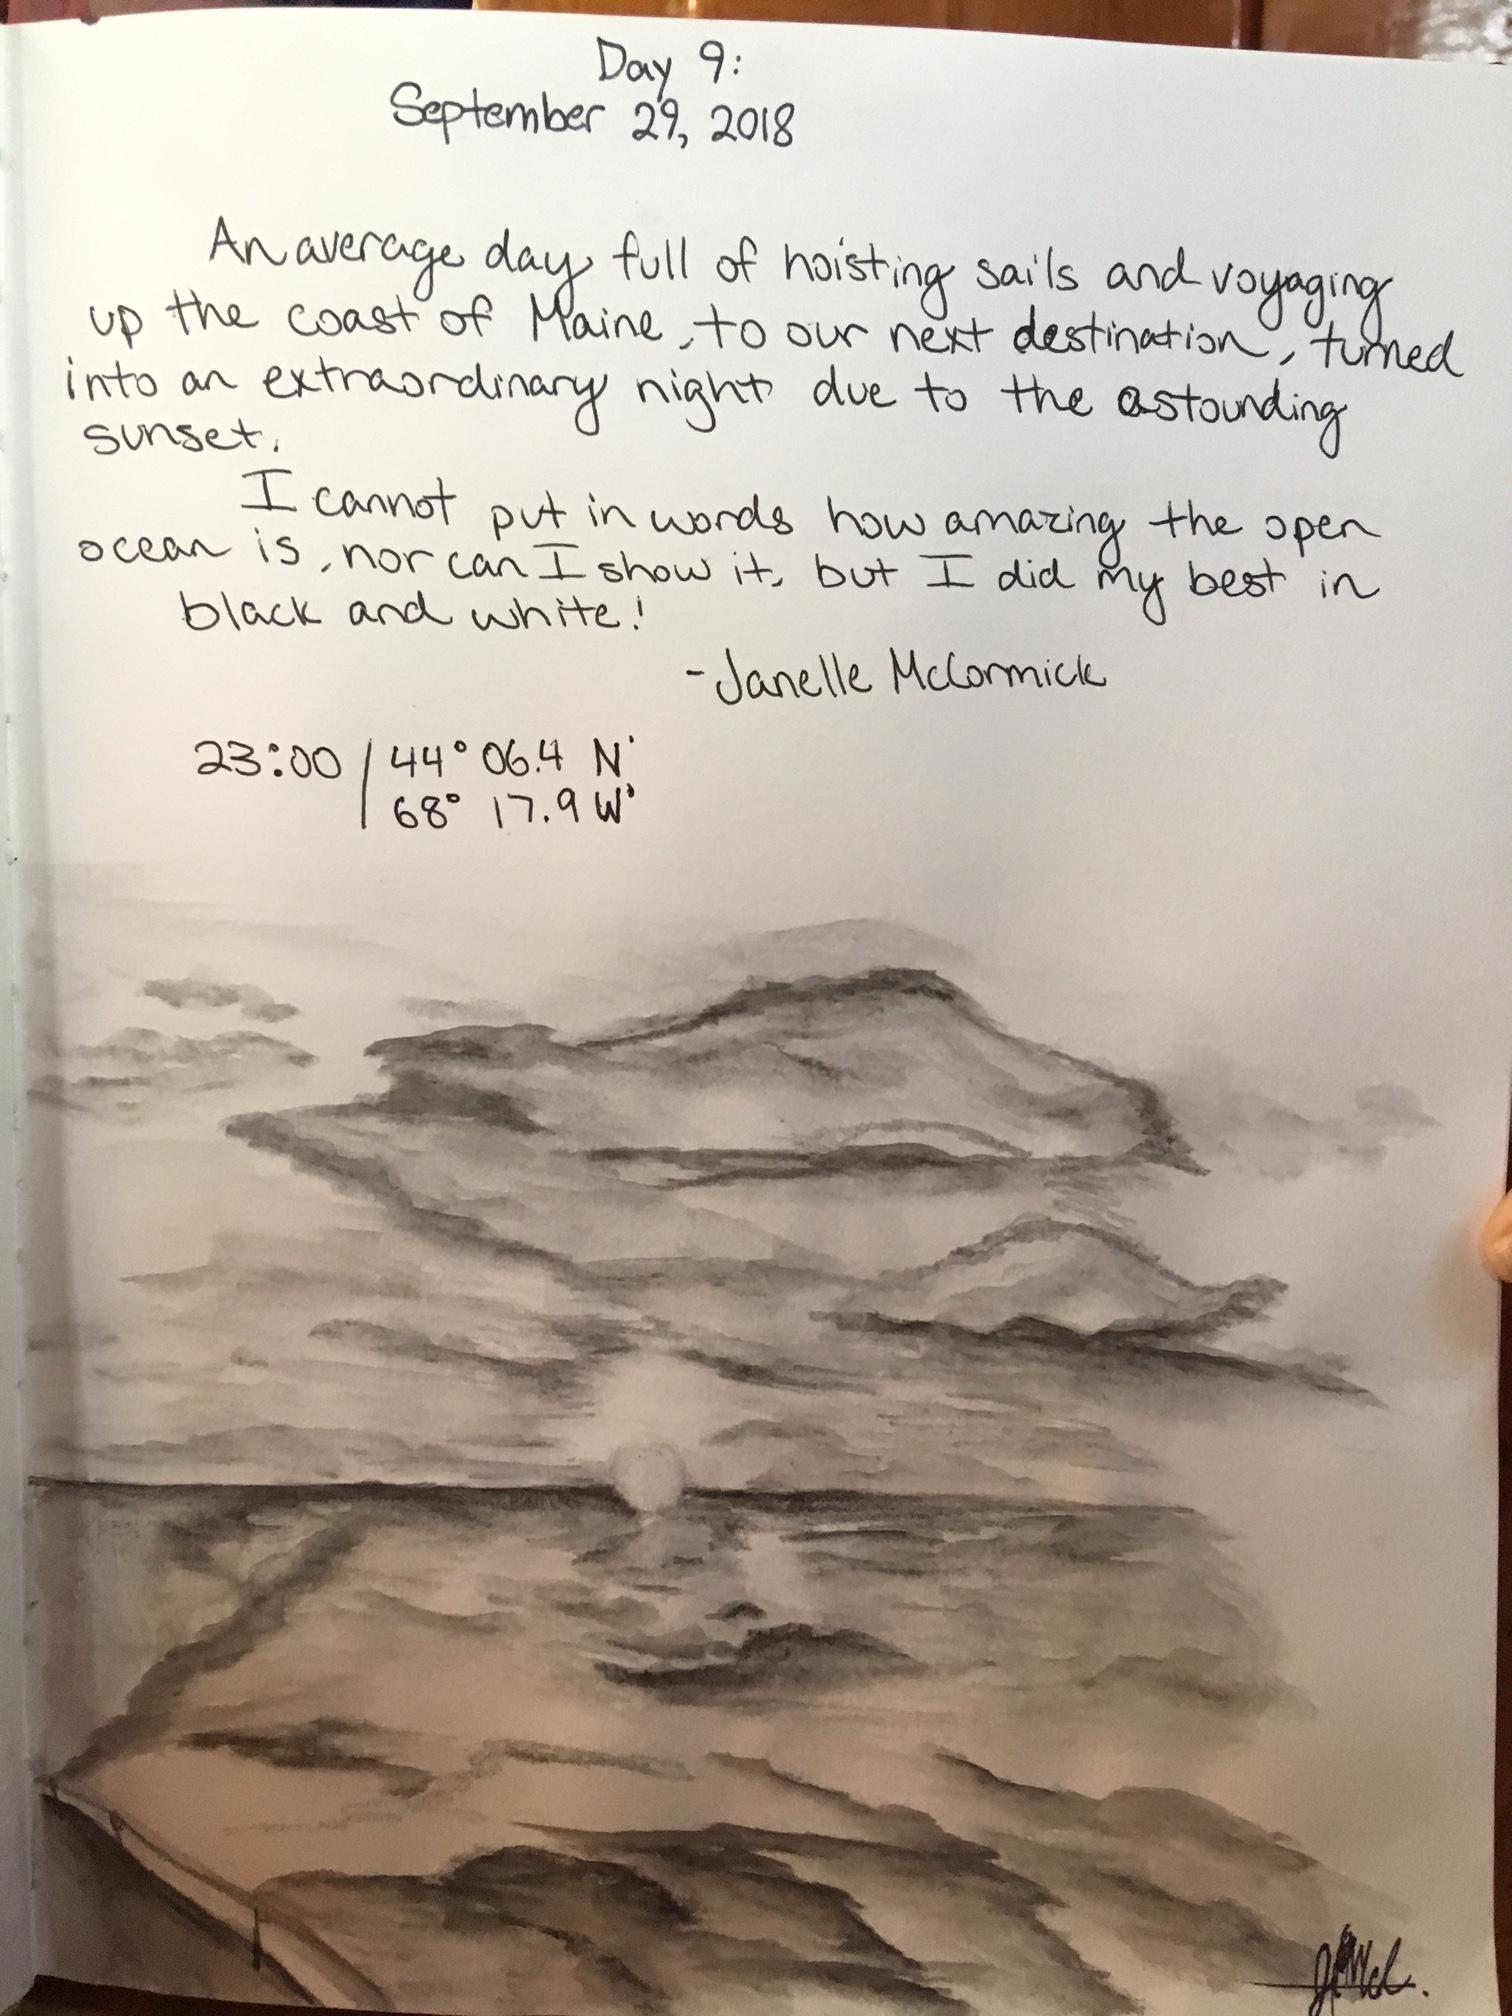 Day 9:
September 29, 2018
An average day full of hoisting sails and voyaging
up the coast of Maine, to our next destination, turned
into an extraordinary night due to the astounding
sunset.
I cannot put in words how amazing the open
ocean is, nor can I show it, but I did my best in
black and white!
-Janelle McCormick
23:00 / 44° 06.4 N'
68° 17.9 W'